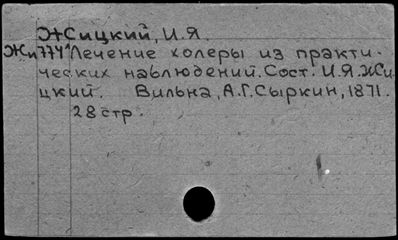 Жсицкий, И.Я.
Жи774 Лечение холеры из практи-
ческих наблюдений. Сост. И.Я.Жи-
цкий. Вильна, А.Г.Сыркин, 1871.
28 стр.